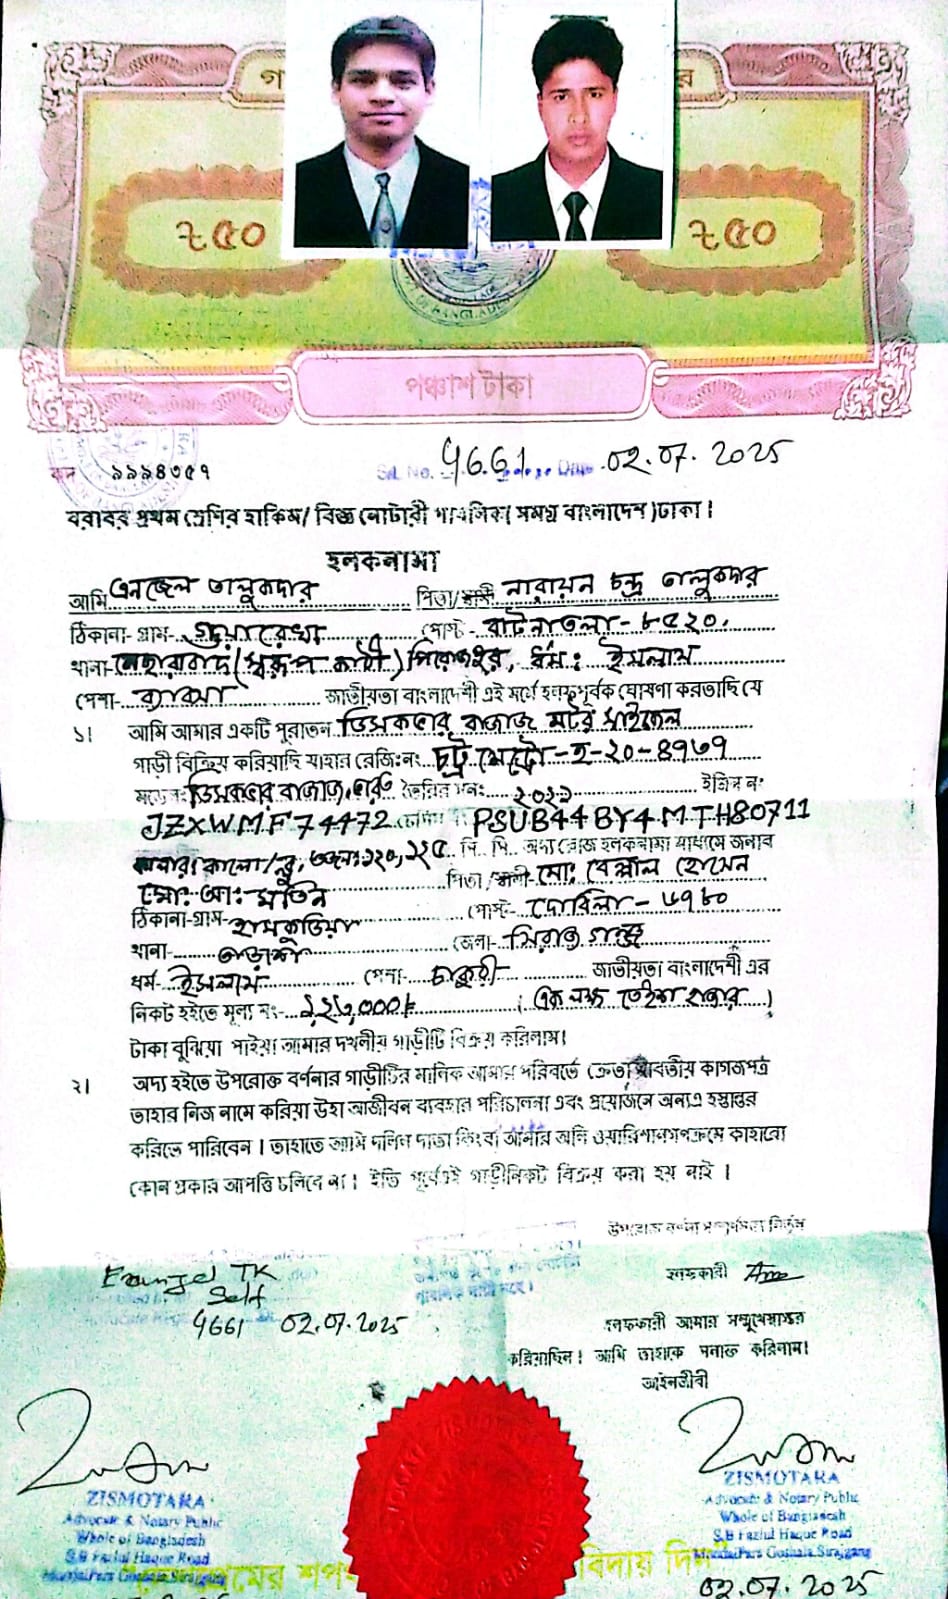 গ র
৳ ৫০ ৳ ৫০
পঞ্চাশ টাকা
কন ৯৯৯৪৩৫৭ S.L. No. 4661 Date 02.07.2025
বরাবর প্রথম শ্রেণির হাকিম/ বিজ্ঞ নোটারী পাবলিক( সমগ্র বাংলাদেশ )ঢাকা।
হলফনামা
আমি এনজেল তালুকদার পিতা/স্বামী নারায়ন চন্দ্র তালুকদার
ঠিকানা- গ্রাম- গুয়ারেখা পোস্ট- বাটনাতলা-৮৫২০,
থানা- নেছারাবাদ (স্বরূপ কাঠী) পিরোজপুর, ধর্ম: ইসলাম
পেশা- ব্যাবসা জাতীয়তা বাংলাদেশী এই মর্মে হলফপূর্বক ঘোষণা করতাছি যে
১। আমি আমার একটি পুরাতন ডিসকভার বাজাজ মটর সাইকেল
গাড়ী বিক্রিয় করিয়াছি যাহার রেজি:নং চট্ট মেট্রো-হ-২০-৪৭৬৭
মডেল: ডিসকভার বাজাজ, তৈরির সনং ২০২১ ইঞ্জিন নং
JZXWMF74472 PSUB44BY4MTH80711
কালো/ব্লু, ওজন: ১২০, ১২৫ সি. সি. অদ্য রোজ হলফনামা মাধ্যমে জনাব
মো: আ: মতিন পিতা /স্বামী- মো: বেল্লাল হোসেন
ঠিকানা-গ্রাম- হামকুড়িয়া পোস্ট- দোবিলা-৬৭৮০
থানা- তাড়াশ জেলা- সিরাজগঞ্জ
ধর্ম- ইসলাম পেশা- চাকুরী জাতীয়তা বাংলাদেশী এর
নিকট হইতে মূল্য নং- ১,২৩,০০০/= ( এক লক্ষ তেইশ হাজার )
টাকা বুঝিয়া পাইয়া আমার দখলীয় গাড়ীটি বিক্রয় করিলাম।
২। অদ্য হইতে উপরোক্ত বর্ণনার গাড়ীটির মালিক আমার পরিবর্তে ক্রেতা যাবতীয় কাগজপত্র
তাহার নিজ নামে করিয়া উহা আজীবন ব্যবহার পরিচালনা এবং প্রয়োজনে অন্যত্র হস্তান্তর
করিতে পারিবেন। তাহাতে আমি দলিল দাতা কিংবা আমার অলি ওয়ারিশানগণক্রমে কাহারো
কোন প্রকার আপত্তি চলিবে না। ইতি পূর্বে এই গাড়ী নিকট বিক্রয় করা হয় নাই।
উপরোক্ত বর্ণনা সম্পূর্ণসত্য নির্ভুল
Evangel TK হলফকারী
Self
4661 02.07.2025
হলফকারী আমার সম্মুখে স্বাক্ষর
করিয়াছেন। আমি তাহাকে সনাক্ত করিলাম।
আইনজীবী
ZISMOTARA
Advocate & Notary Public
Whole of Bangladesh
S.B Fazlul Haque Road
Goshala, Sirajganj
ZISMOTARA
Advocate & Notary Public
Whole of Bangladesh
S.B Fazlul Haque Road
Goshala, Sirajganj
02.07.2025